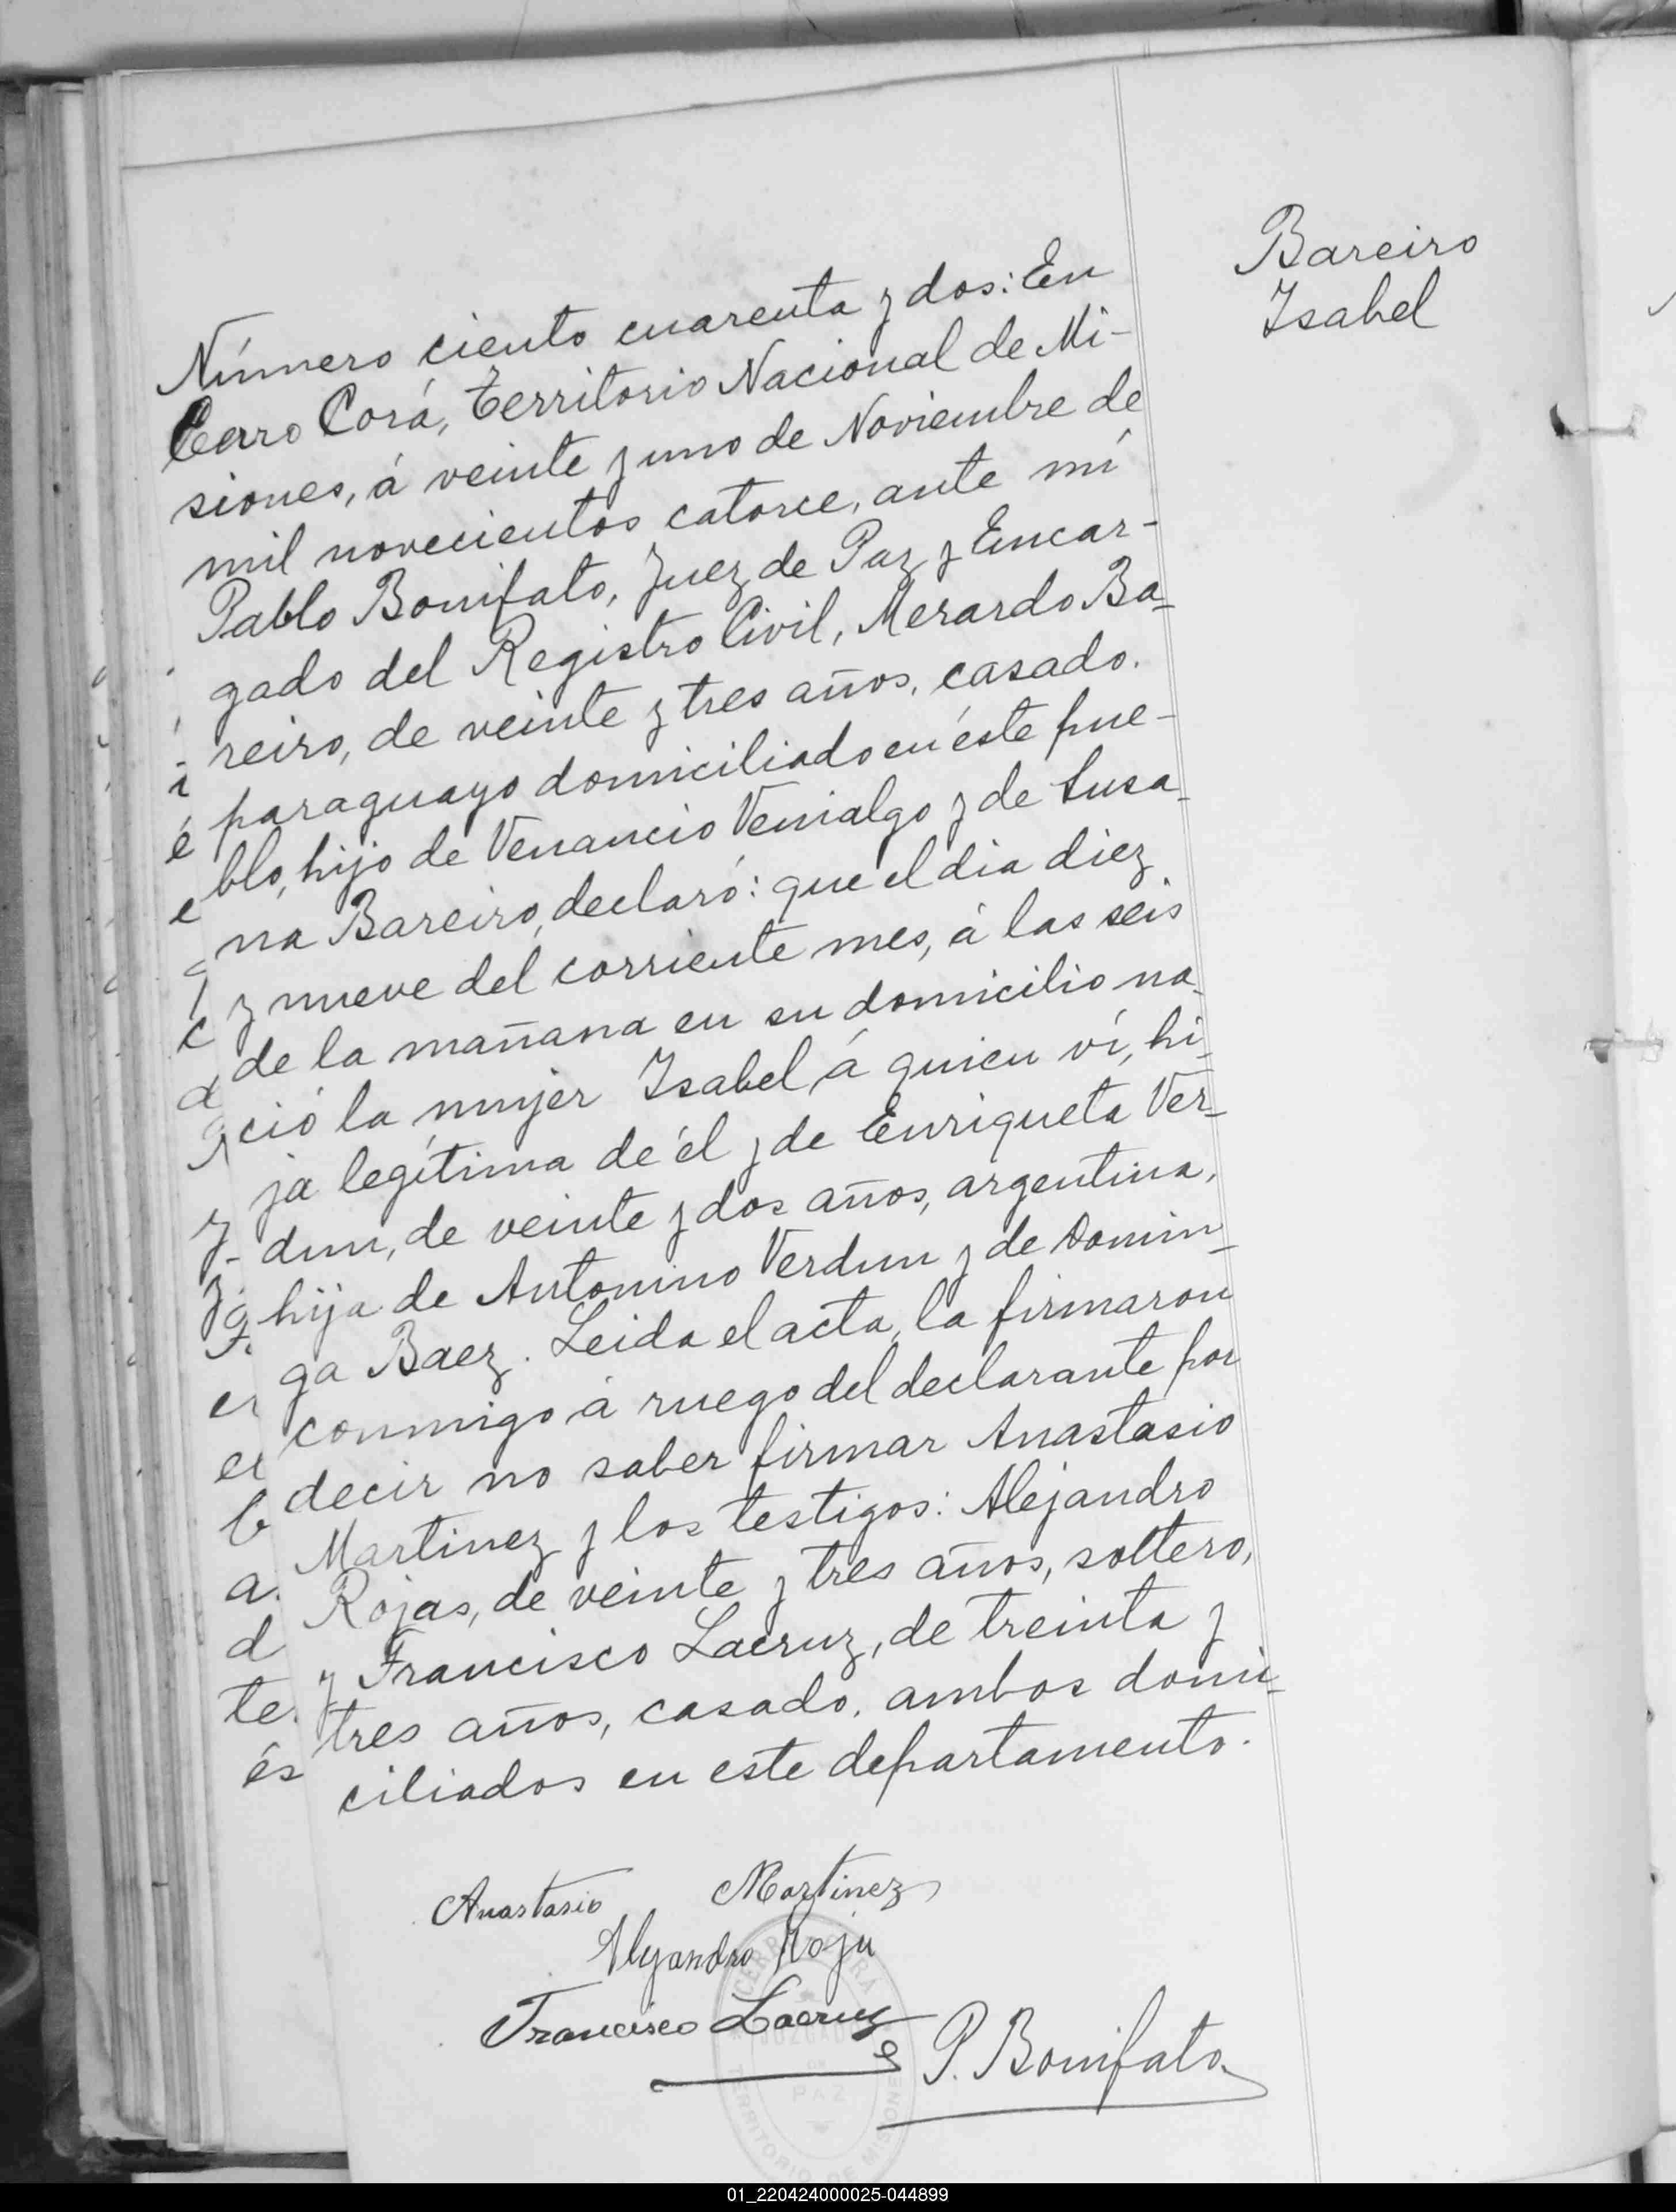 Bareiro
Isabel
Número ciento cuarenta y dos: En
Cerro Corá, Territorio Nacional de Mi-
siones, á veinte y uno de Noviembre de
mil novecientos catorce, ante mí
Pablo Bonifato, Juez de Paz y Encar-
gado del Registro Civil, Merardo Ba-
reiro, de veinte y tres años, casado.
paraguayo domiciliado en éste pue-
blo, hijo de Venancio Venialgo y de Susa-
na Bareiro, declaró: que el dia diez
y nueve del corriente mes, á las seis
de la mañana en su domicilio na-
ció la mujer Isabel á quien ví, hi-
ja legítima de él y de Enriqueta Ver-
dun, de veinte y dos años, argentina,
hija de Antonino Verdun y de Domin-
ga Baez. Leida el acta, la firmaron
conmigo á ruego del declarante por
decir no saber firmar Anastasio
Martinez y los testigos: Alejandro
Rojas, de veinte y tres años, soltero,
y Francisco Lacruz, de treinta y
tres años, casado, ambos domi-
ciliados en este departamento.
Anastasio Martinez
Alejandro Roja
Francisco Lacruz
P. Bonifato
PAZ
TERRITORIO DE MISIONES
01_220424000025-044899